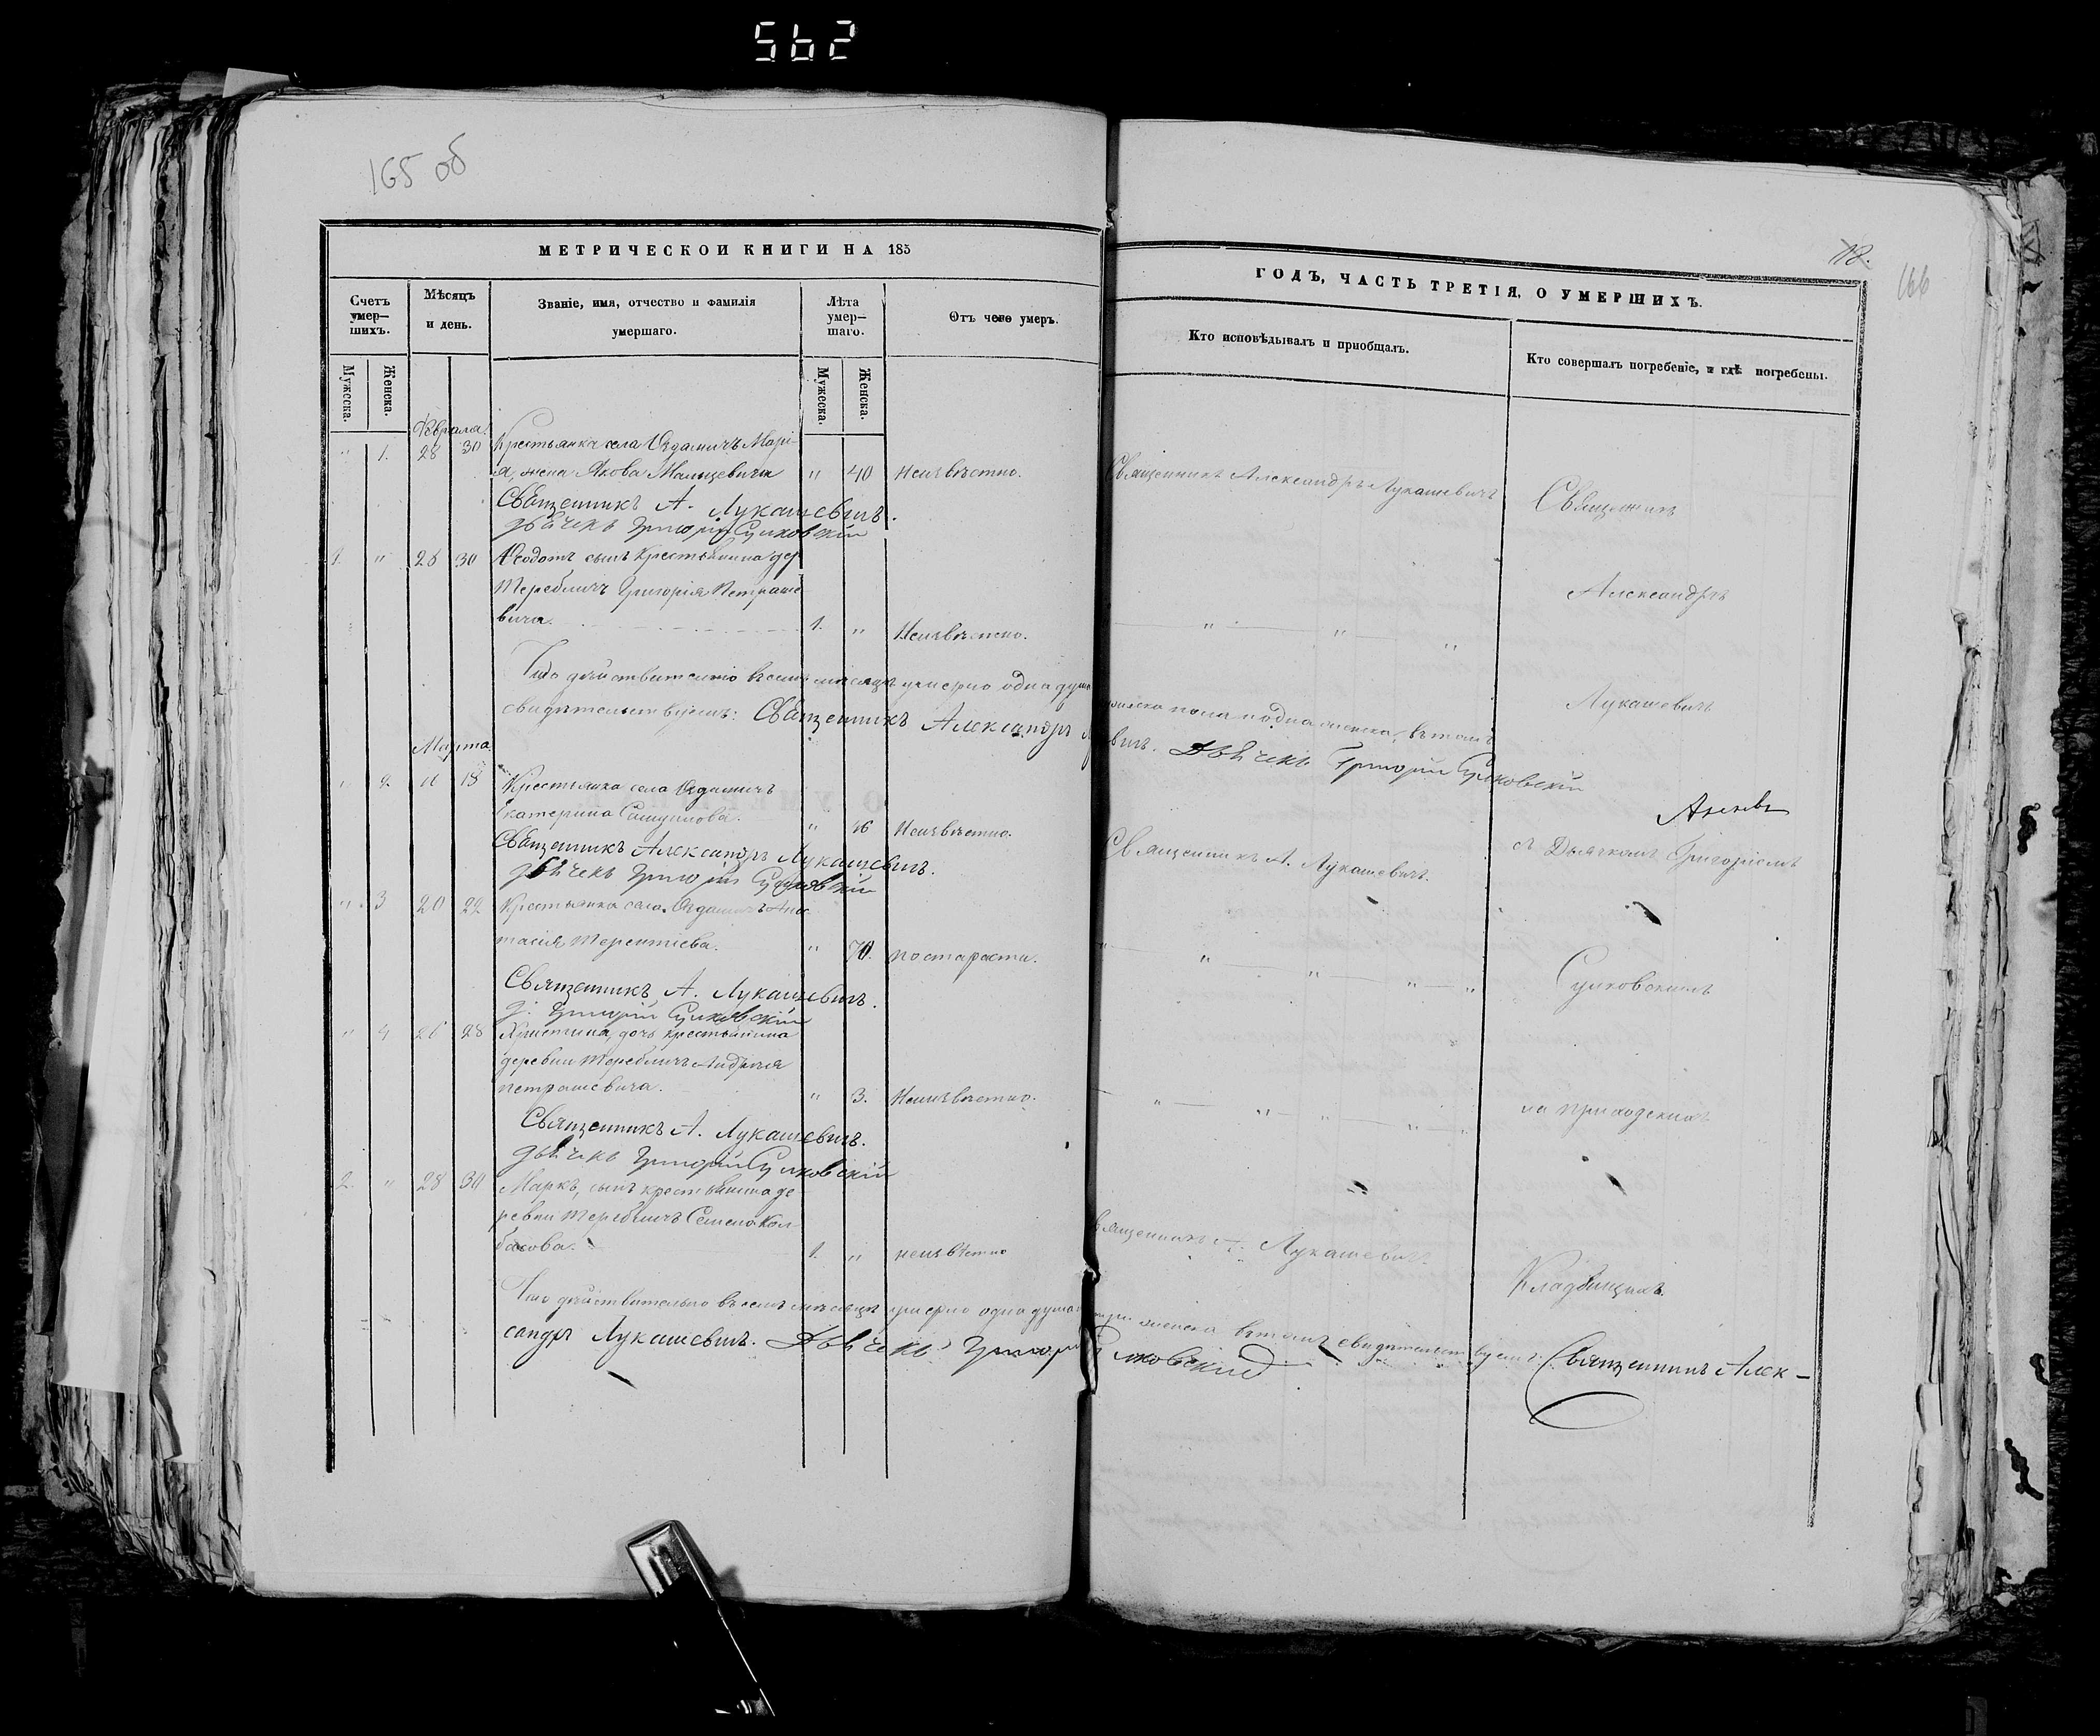 562
165 об
МЕТРИЧЕСКОЙ КНИГИ НА 185
Счетъ умер-шихъ.
Мѣсяцъ и день.
Званіе, имя, отчество и фамилія умершаго.
Лѣта умер-шаго.
Отъ чего умеръ.
Мужеска.
Женска.
Мужеска.
Женска.
Февраля
" 1. 28 30 Крестьянка села Оздамичъ Марі-
я, жена Якова Малишевича " 40 Неизвѣстно.
Священникъ А. Лукашевичъ.
Дьячекъ Григорій Сулковскій
1. " 28 30 Ѳеодотъ сынъ крестьянина дер
Теребличъ Григорія Петраше
вича. 1. " Неизвѣстно.
Что дѣйствительно въ семъ мѣсяцѣ умерло одна душа
свидѣтельствуемъ: Священникъ Александръ
Марта
" 2. 16 18 Крестьянка села Оздамичъ
Екатерина
" 46 Неизвѣстно.
Священникъ Александръ Лукашевичъ.
Дьячекъ Григорій Сулковскій
" 3 20 22 Крестьянка села Оздамичъ Анас
тасія Терентіева. " 70. по старости.
Священникъ А. Лукашевичъ.
Д. Григорій Сулковскій
" 4 26 28 Христина, дочь крестьянина
деревни Теребличъ Андрея
Петрашевича. " 3. Неизвѣстно.
Священникъ А. Лукашевичъ.
Дьячекъ Григорій Сулковскій
2. " 28 30 Маркъ, сынъ крестьянина де-
ревни Теребличъ Семена Кол-
басова. 1. " неизвѣстно
Что дѣйствительно въ семъ мѣсяцѣ умерло одна душа
сандръ Лукашевичъ. Дьячекъ Григорій
18.
166
ГОДЪ, ЧАСТЬ ТРЕТІЯ, О УМЕРШИХЪ.
Кто исповѣдывалъ и пріобщалъ.
Кто совершалъ погребеніе, и гдѣ погребены.
Священникъ Александръ Лукашевичъ
Священникъ
Александръ
" " "
Лукашевичъ
мужеска пола и одна женска, въ томъ
вичъ. Дьячекъ Григорій Сулковскій
съ Дьячкомъ Григоріемъ
Священникъ А. Лукашевичъ.
" " " " "
Сулковскимъ
" " " " "
на приходскихъ
Священникъ А. Лукашевичъ
Кладбищахъ.
три женска въ томъ свидѣтельствуемъ: Священникъ Алек-
лковскій